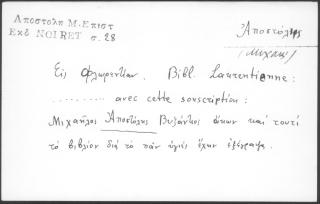 Αποστολη Μ. Επιστ
Εκδ NOIRET σ. 28
Ἀποστόλης
(Μιχαήλ)
Εἰς Φλωρεντίαν. Bibl. Laurentienne:
.......... avec cette souscription:
Μιχαῆλος Ἀποστόλης Βυζάντιος καὶ τουτὶ
τὸ βιβλίον διὰ τὸ πᾶν ὑγιές ἔχειν ἐξέγραψα.